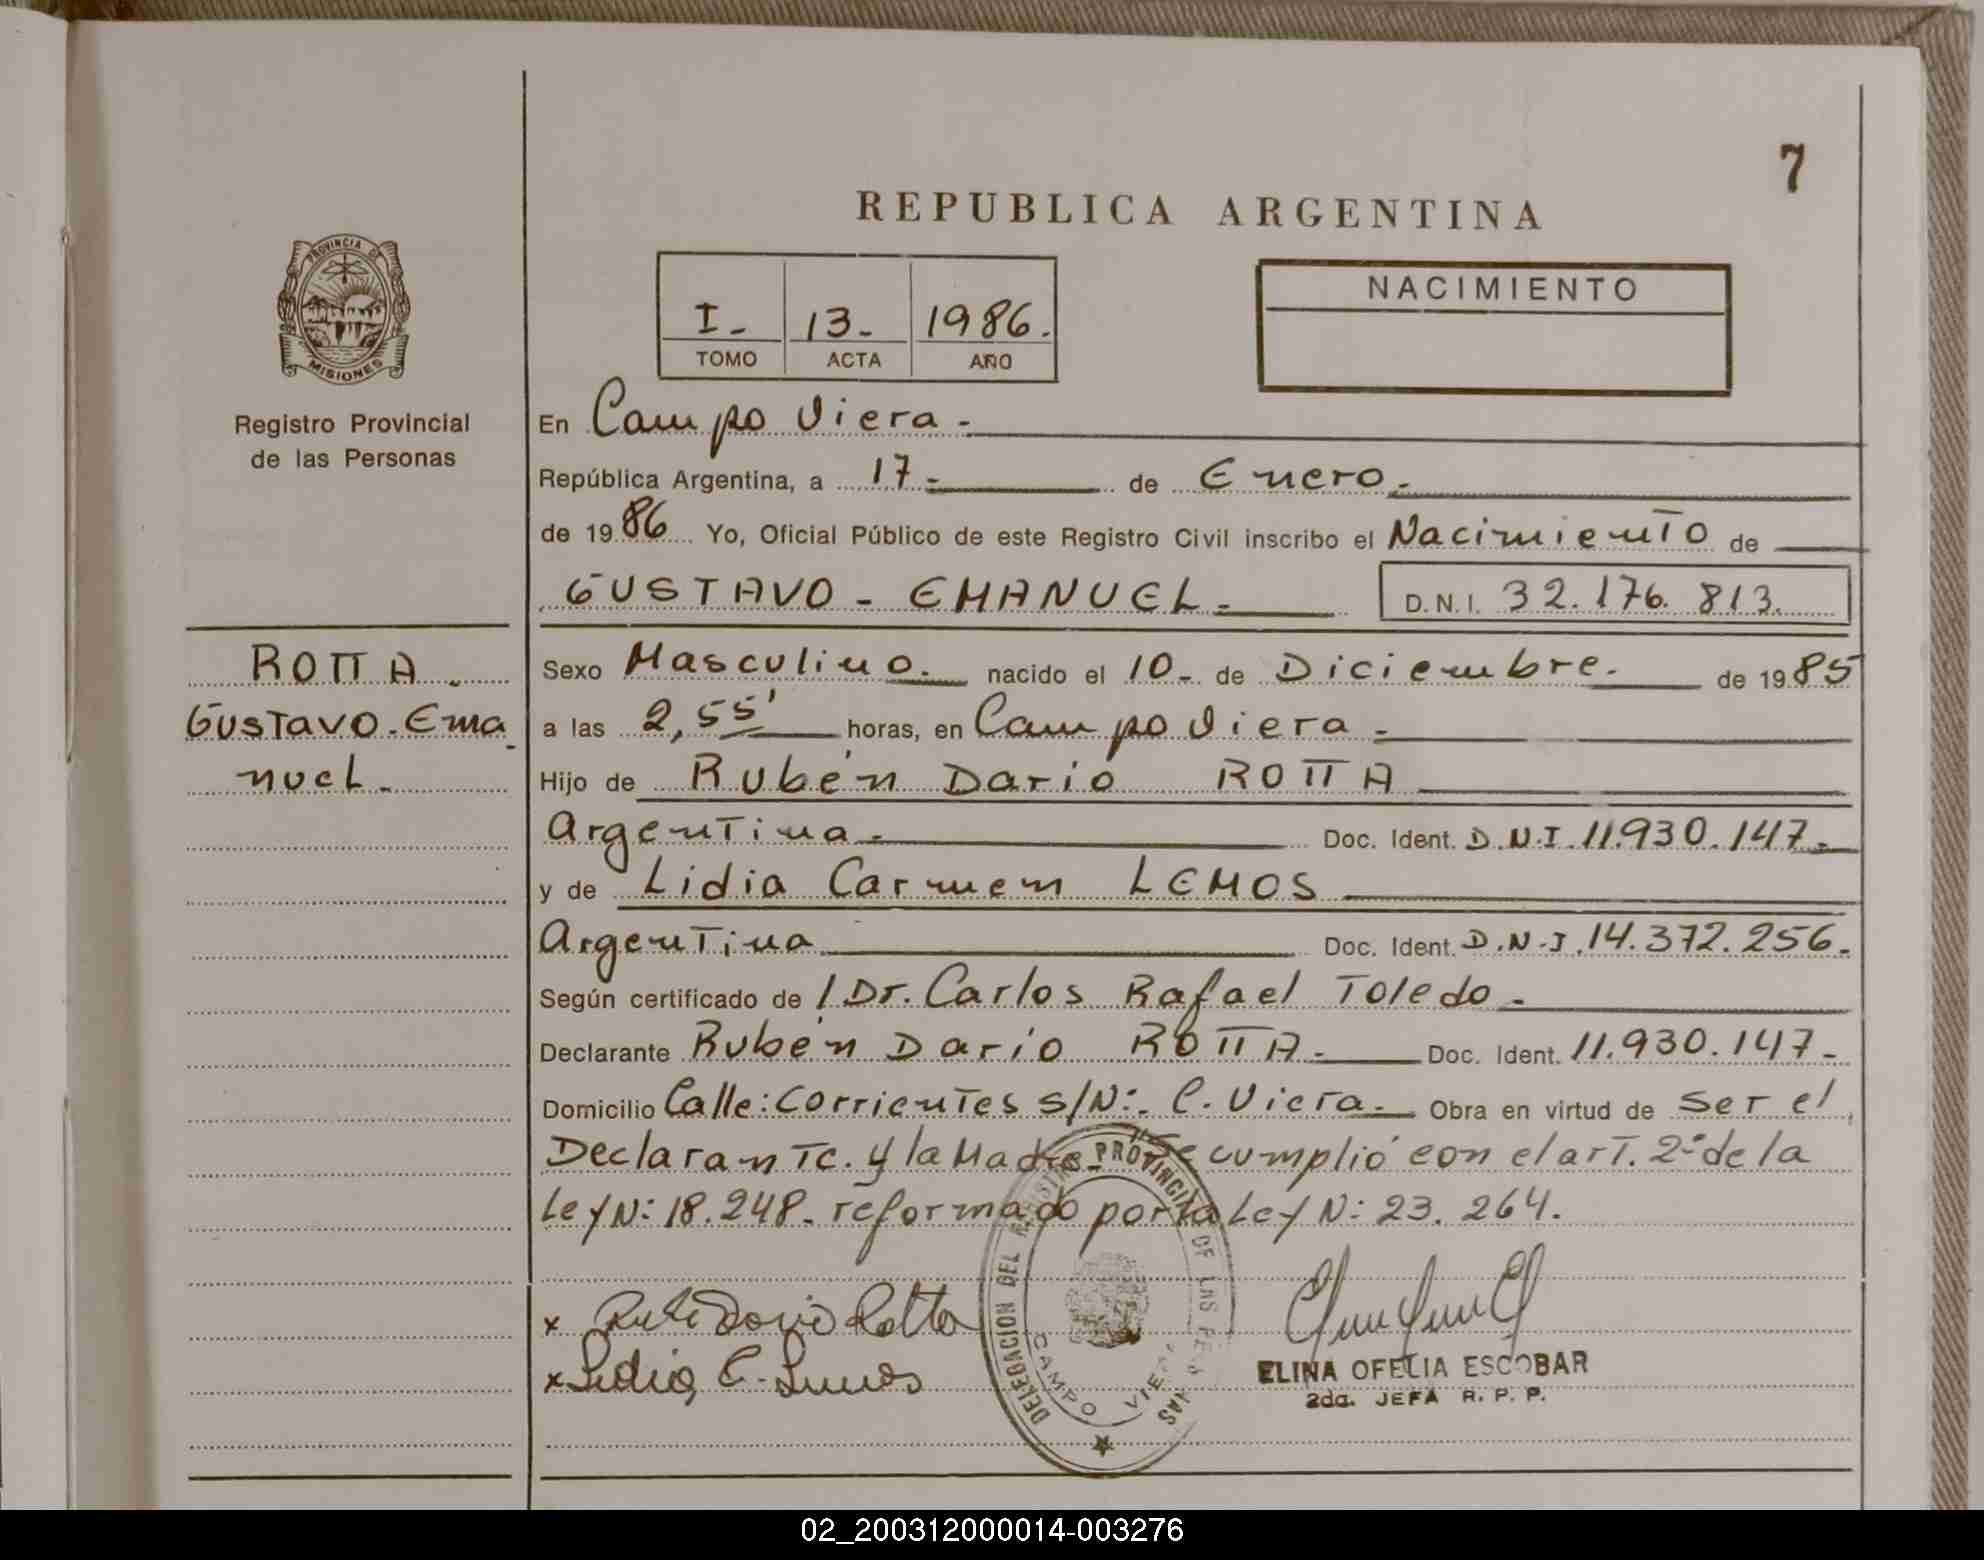 7
REPUBLICA ARGENTINA
PROVINCIA DE
MISIONES
I- 13- 1986.
TOMO ACTA AÑO
NACIMIENTO
Registro Provincial
de las Personas
En Campo Viera -
República Argentina, a 17- de Enero.-
de 1986 Yo, Oficial Público de este Registro Civil inscribo el Nacimiento de
GUSTAVO - EMANUEL - D.N.I. 32.176.813.
ROTTA.
Gustavo-Ema
nuel.
Sexo Masculino. nacido el 10- de Diciembre. de 1985
a las 2,55' horas, en Campo Viera -
Hijo de Rubén Dario ROTTA
Argentina - Doc. Ident. D.N.I. 11.930.147-
y de Lidia Carmem LEMOS
Argentina Doc. Ident. D.N.I. 14.372.256.
Según certificado de / Dr. Carlos Rafael Toledo -
Declarante Rubén Dario ROTTA - Doc. Ident. 11.930.147-
Domicilio Calle: Corrientes s/N: C. Viera. Obra en virtud de ser el
Declarante. y la Madre - Se cumplió con el art. 2º de la
Ley N: 18.248. reformado por la Ley N: 23.264.
x Dario Rotta
x Lidia C. Lemos
DELEGACION DEL REGISTRO PROVINCIAL DE LAS PERSONAS
CAMPO VIERA
ELINA OFELIA ESCOBAR
2da. JEFA R. P. P.
02_200312000014-003276